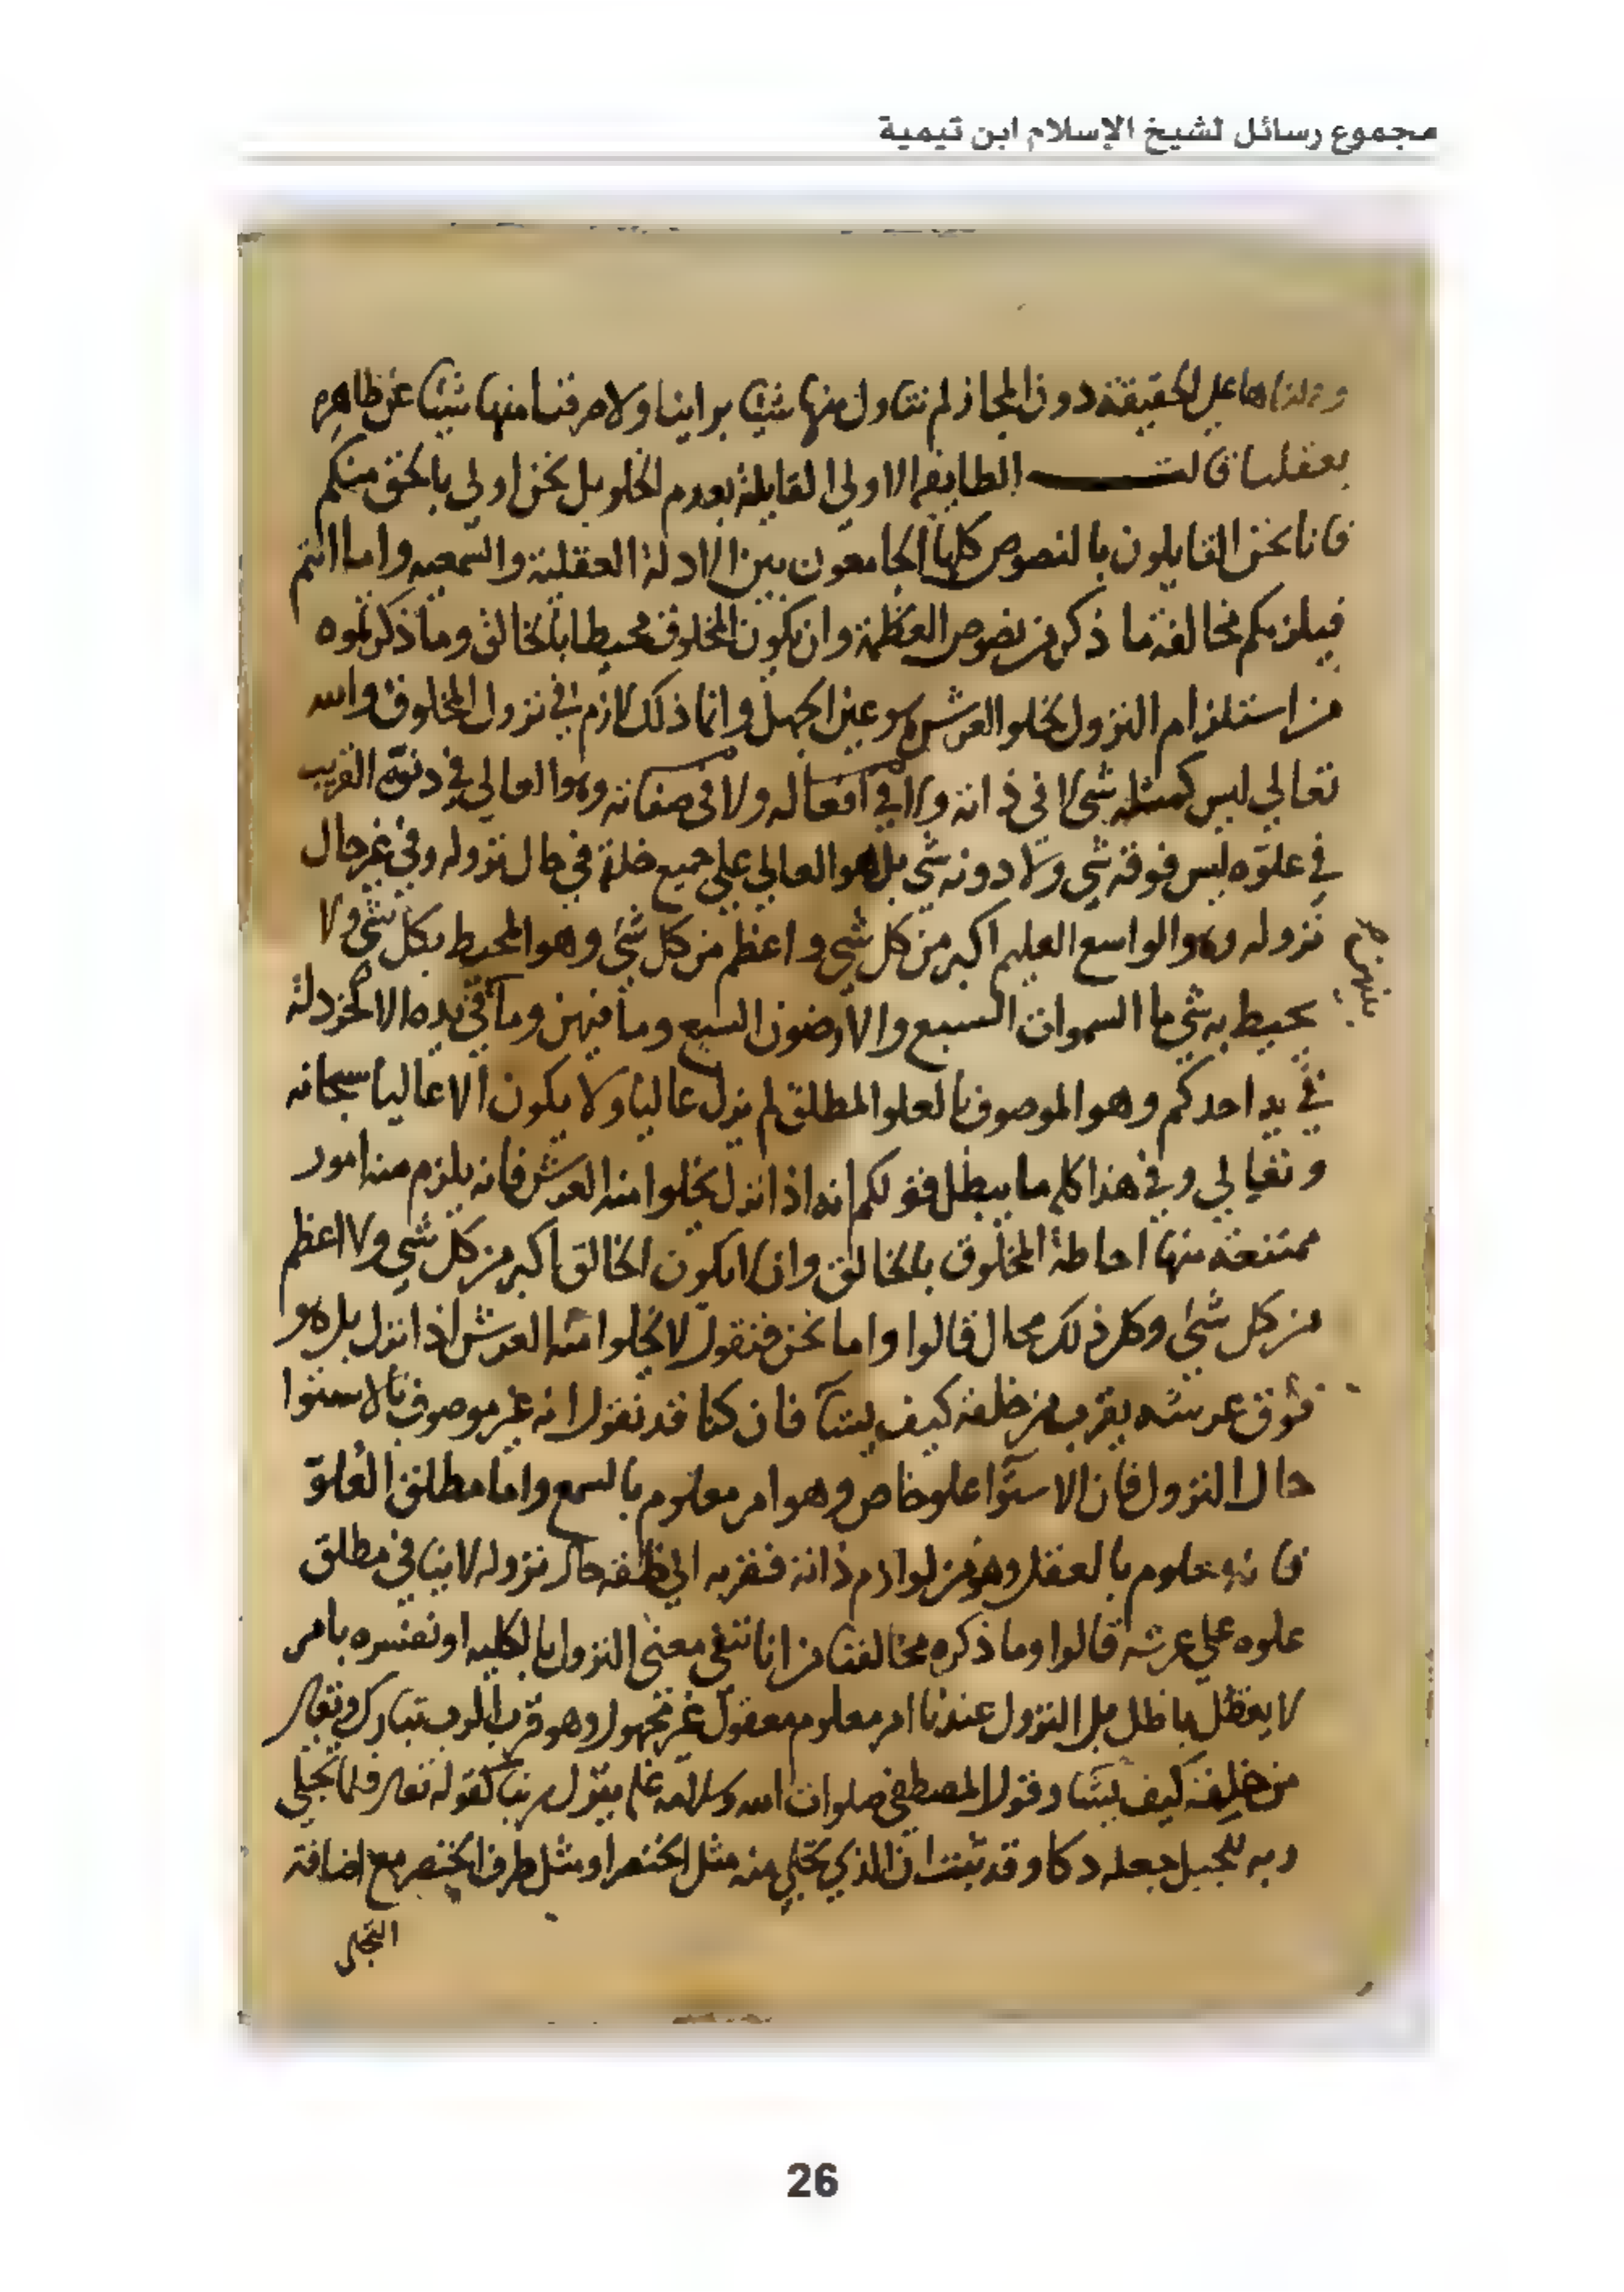 مجموع رسائل لشيخ الإسلام ابن تيمية
وحملناها على الحقيقة دون المجاز لم نتاول منها شيئا براينا ولا صرفنا منها شيئا عن ظاهره
بعقلنا قالت الطايفة الاولى القايلة بعدم الخلو بل نحن اولى بالحق منكم
فانا نحن القايلون بالنصوص كلها الجامعون بين الادلة العقلية والسمعيه واما انتم
فيلزمكم مخالفة ما ذكر من نصوص العظمة وان يكون المخلوق محيطا بالخالق وما ذكرتموه
من استلزام النزول لخلو العرش هو عين الجهل وانما ذلك لازم في نزول المخلوق والله
تعالى ليس كمثله شي لا في ذاته ولا في افعاله ولا في صفاته وهو العالي في دنوه القريب
في علوه ليس فوقه شي ولا دونه شي بل هو العالي على جميع خلقه في حال نزوله وفي غير حال
نزوله وهو الواسع العليم اكبر من كل شي واعظم من كل شي وهو المحيط بكل شي ولا
يحيط به شي ما السموات السبع والارضون السبع وما فيهن وما في يده الا كخردلة
بينهن صح
في يد احدكم وهو الموصوف بالعلو المطلق لم يزل عاليا ولا يكون الا عاليا سبحانه
وتعالى وفي هذا كله ما يبطل قولكم انه اذا نزل يخلوا منه العرش فانه يلزم منه امور
ممتنعة منها احاطة المخلوق بالخالق وان لا يكون الخالق اكبر من كل شي ولا اعظم
من كل شي وكل ذلك محال قالوا واما نحن فنقول لا يخلوا منه العرش اذا نزل بل هو
فوق عرشه يقرب من خلقه كيف يشآ فان كنا قد نقول انه غير موصوف بالاستوا
حال النزول فان الاستوا علو خاص وهو امر معلوم بالسمع واما مطلق العلو
فانه معلوم بالعقل وهو من لوازم ذاته فقربه الى خلقه حال نزوله لا ينافي مطلق
علوه على عرشه قالوا وما ذكره مخالفنا من انا ننفي معنى النزول بالكليه او نفسره بامر
لا يعقل باطل بل النزول عندنا امر معلوم معقول غير مجهول وهو قرب الرب تبارك وتعالى
من خلقه كيف يشا وقول المصطفى صلوات الله وسلامه عليه ينزل ربنا كقوله تعالى فلما تجلى
ربه للجبل جعله دكا وقد ثبت ان الذي تجلى منه مثل الخنصر او مثل طرف الخنصر مع اضافة
التجلي
26